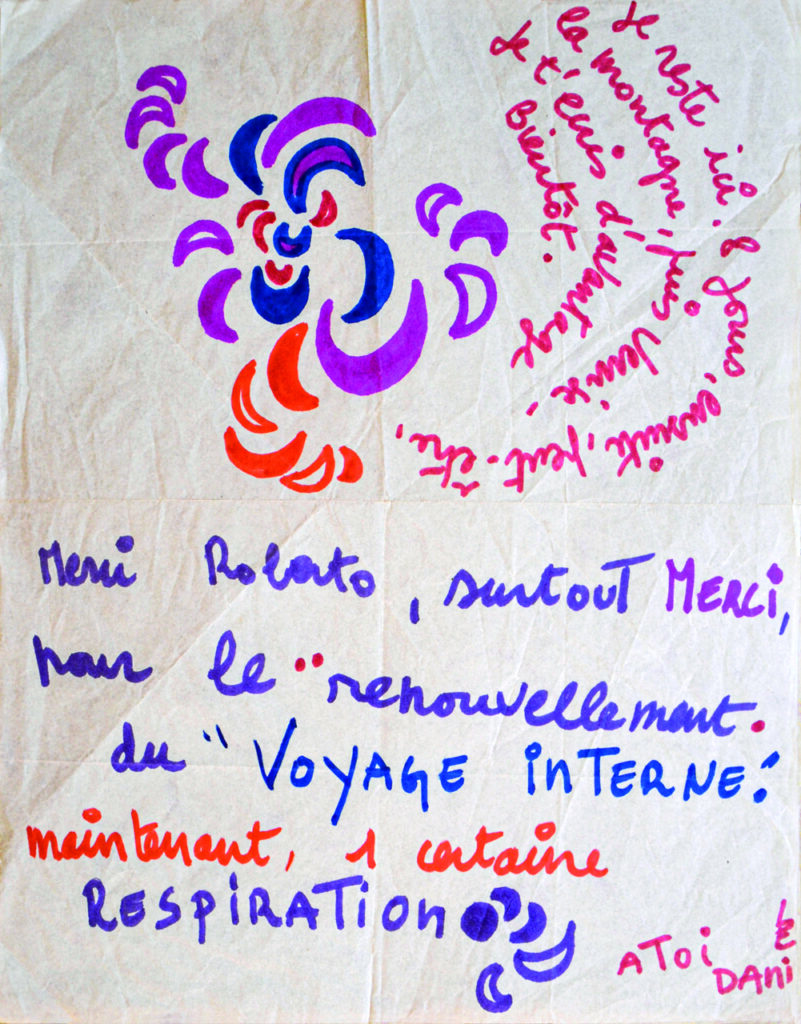 Je reste ici 8 jours, ensuite, peut-être,
la montagne, puis Venise.
Je t'écris d'avantage
bientôt.
Merci Roberto, surtout MERCI,
pour le "renouvellement.
du "VOYAGE INTERNE."
maintenant, 1 certaine
RESPIRATION
A TOI
LE
DANI